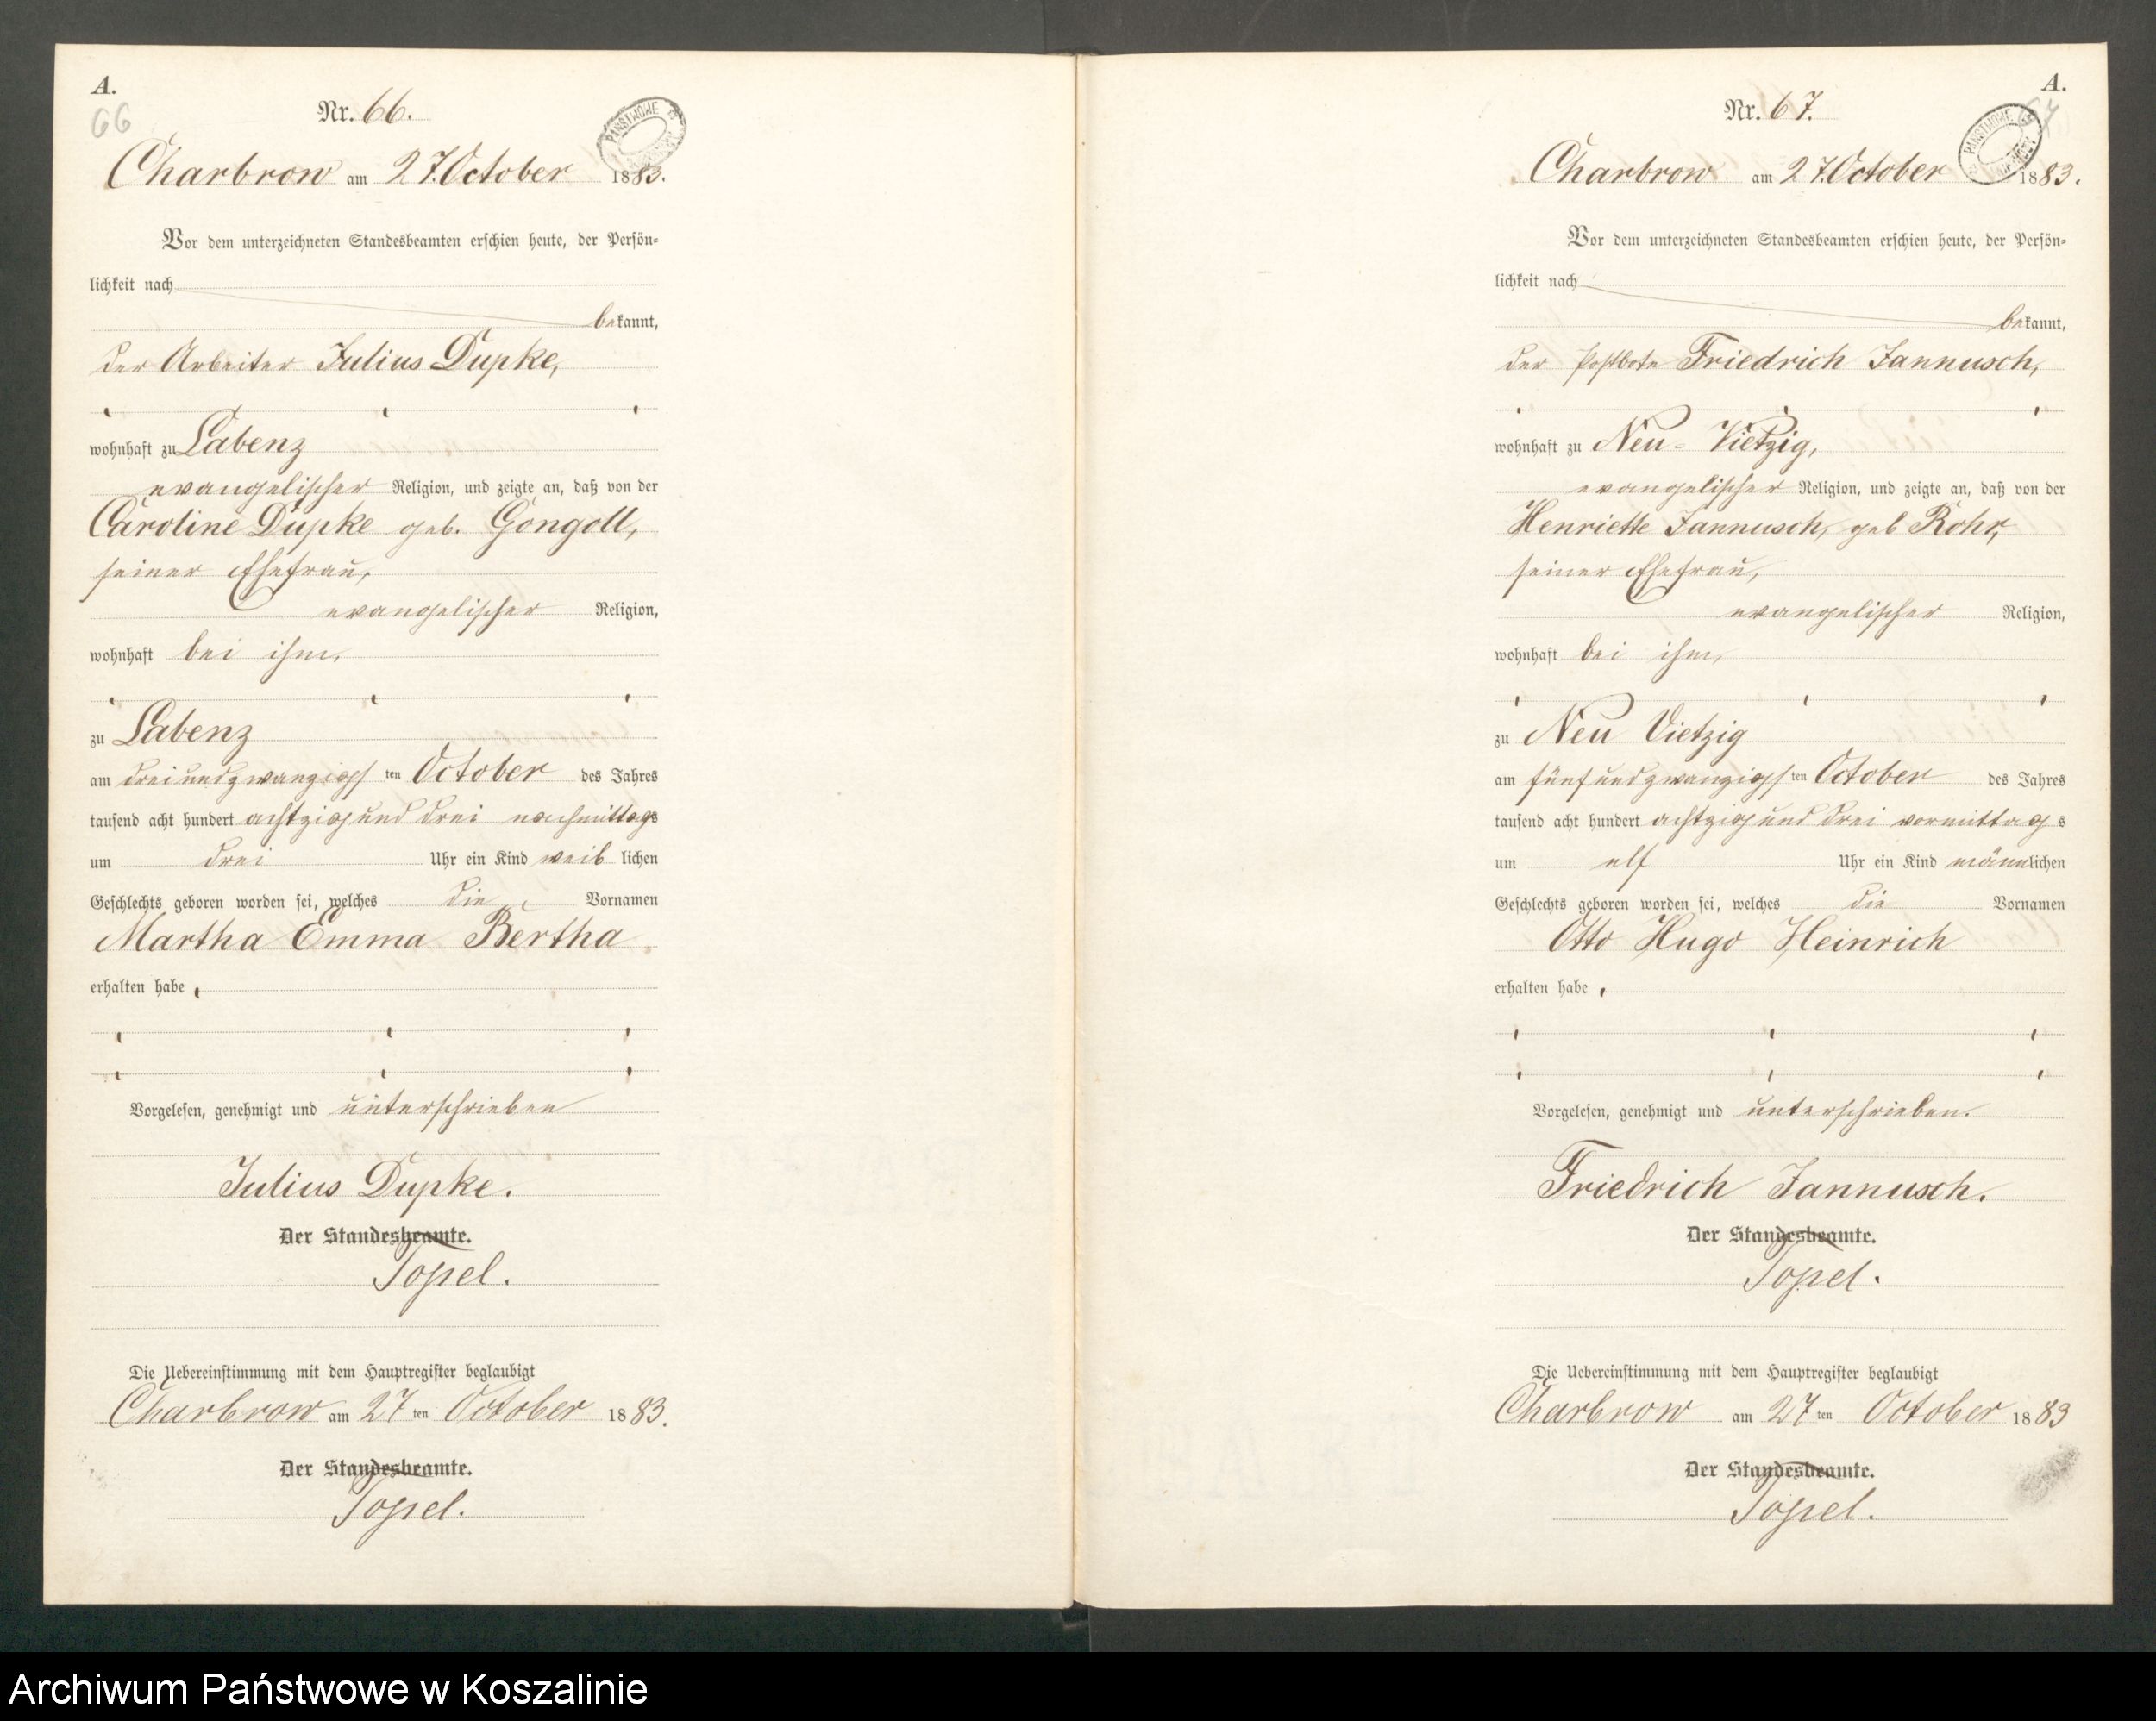 A.
66
Nr. 66.
PAŃSTWOWE
Charbrow am 27. October 1883.
Vor dem unterzeichneten Standesbeamten erschien heute, der Persön-
lichkeit nach
bekannt,
der Arbeiter Julius Dupke,
wohnhaft zu Labenz
evangelischer Religion, und zeigte an, daß von der
Caroline Dupke geb. Gongoll,
seiner Ehefrau,
evangelischer Religion,
wohnhaft bei ihm,
zu Labenz
am dreiundzwanzigsten October des Jahres
tausend acht hundert achtzig und drei nachmittags
um drei Uhr ein Kind weiblichen
Geschlechts geboren worden sei, welches die Vornamen
Martha Emma Bertha
erhalten habe,
Vorgelesen, genehmigt und unterschrieben
Julius Dupke.
Der Standesbeamte.
Topel.
Die Uebereinstimmung mit dem Hauptregister beglaubigt
Charbrow am 27ten October 1883.
Der Standesbeamte.
Topel.
A.
67
Nr. 67.
PAŃSTWOWE
Charbrow am 27. October 1883.
Vor dem unterzeichneten Standesbeamten erschien heute, der Persön-
lichkeit nach
bekannt,
der Postbote Friedrich Jannusch,
wohnhaft zu Neu-Vietzig,
evangelischer Religion, und zeigte an, daß von der
Henriette Jannusch, geb Rohr,
seiner Ehefrau,
evangelischer Religion,
wohnhaft bei ihm,
zu Neu Vietzig
am fünfundzwanzigsten October des Jahres
tausend acht hundert achtzig und drei vormittags
um elf Uhr ein Kind männlichen
Geschlechts geboren worden sei, welches die Vornamen
Otto Hugo Heinrich
erhalten habe,
Vorgelesen, genehmigt und unterschrieben.
Friedrich Jannusch.
Der Standesbeamte.
Topel.
Die Uebereinstimmung mit dem Hauptregister beglaubigt
Charbrow am 27ten October 1883
Der Standesbeamte.
Topel.
Archiwum Państwowe w Koszalinie